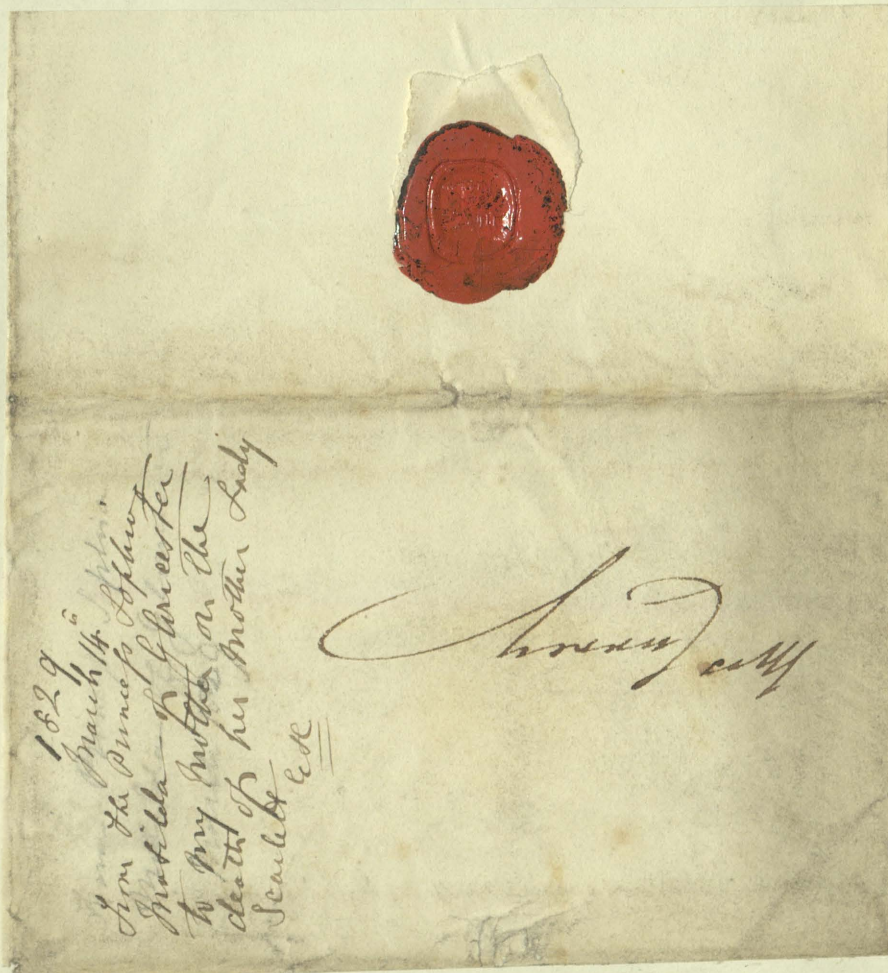 1829
March 14th
From the Princess Sophia
Matilda of Gloucester
to my mother on the
death of her mother Lady
Scarlett